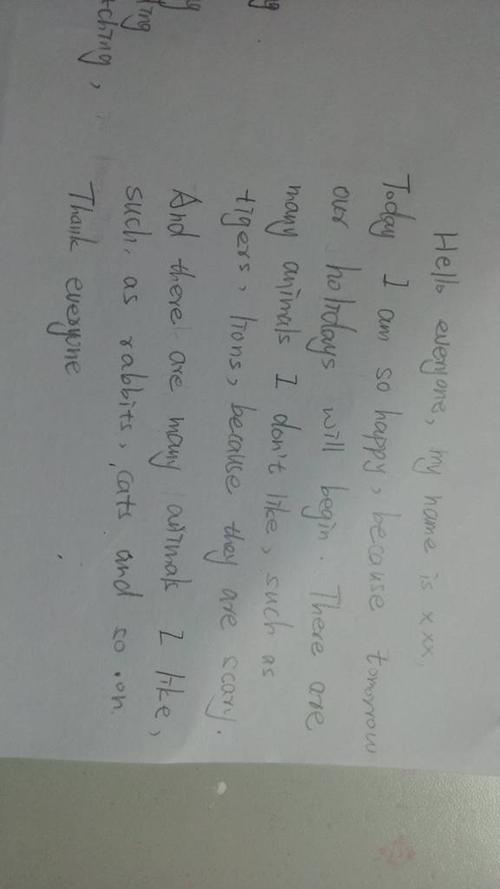 Hello everyone, my name is xxx.
Today I am so happy, because tomorrow
our holidays will begin. There are
many animals I don't like, such as
tigers, lions, because they are scary.
And there are many animals I like,
such as rabbits, cats and so on.
Thank everyone